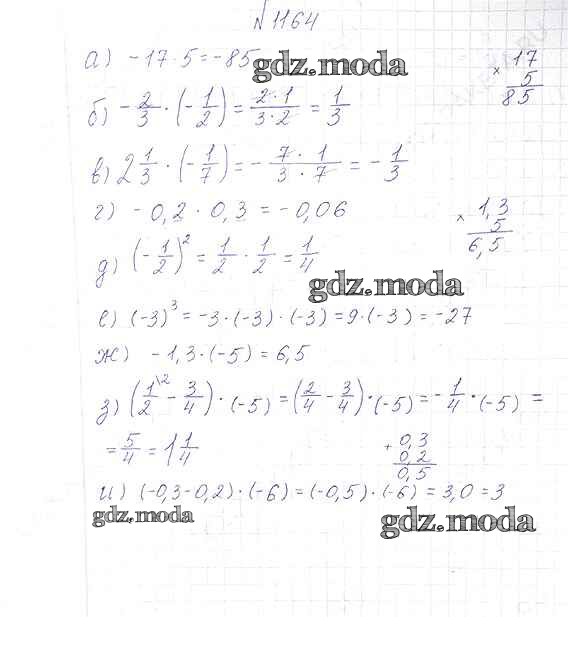 №1164
а) -17·5=-85
gdz.moda
× 17
5
85
б) -2/3 · (-1/2) = 2·1/3·2 = 1/3
в) 2 1/3 · (-1/7) = - 7·1/3·7 = -1/3
г) -0,2 · 0,3 = -0,06
× 1,3
5
6,5
д) (-1/2)² = 1/2 · 1/2 = 1/4
gdz.moda
е) (-3)³ = -3·(-3)·(-3) = 9·(-3) = -27
ж) -1,3·(-5) = 6,5
з) (1/2\2 - 3/4)·(-5) = (2/4 - 3/4)·(-5) = -1/4·(-5) =
= 5/4 = 1 1/4
+ 0,3
0,2
0,5
и) (-0,3-0,2)·(-6) = (-0,5)·(-6) = 3,0 = 3
gdz.moda
gdz.moda